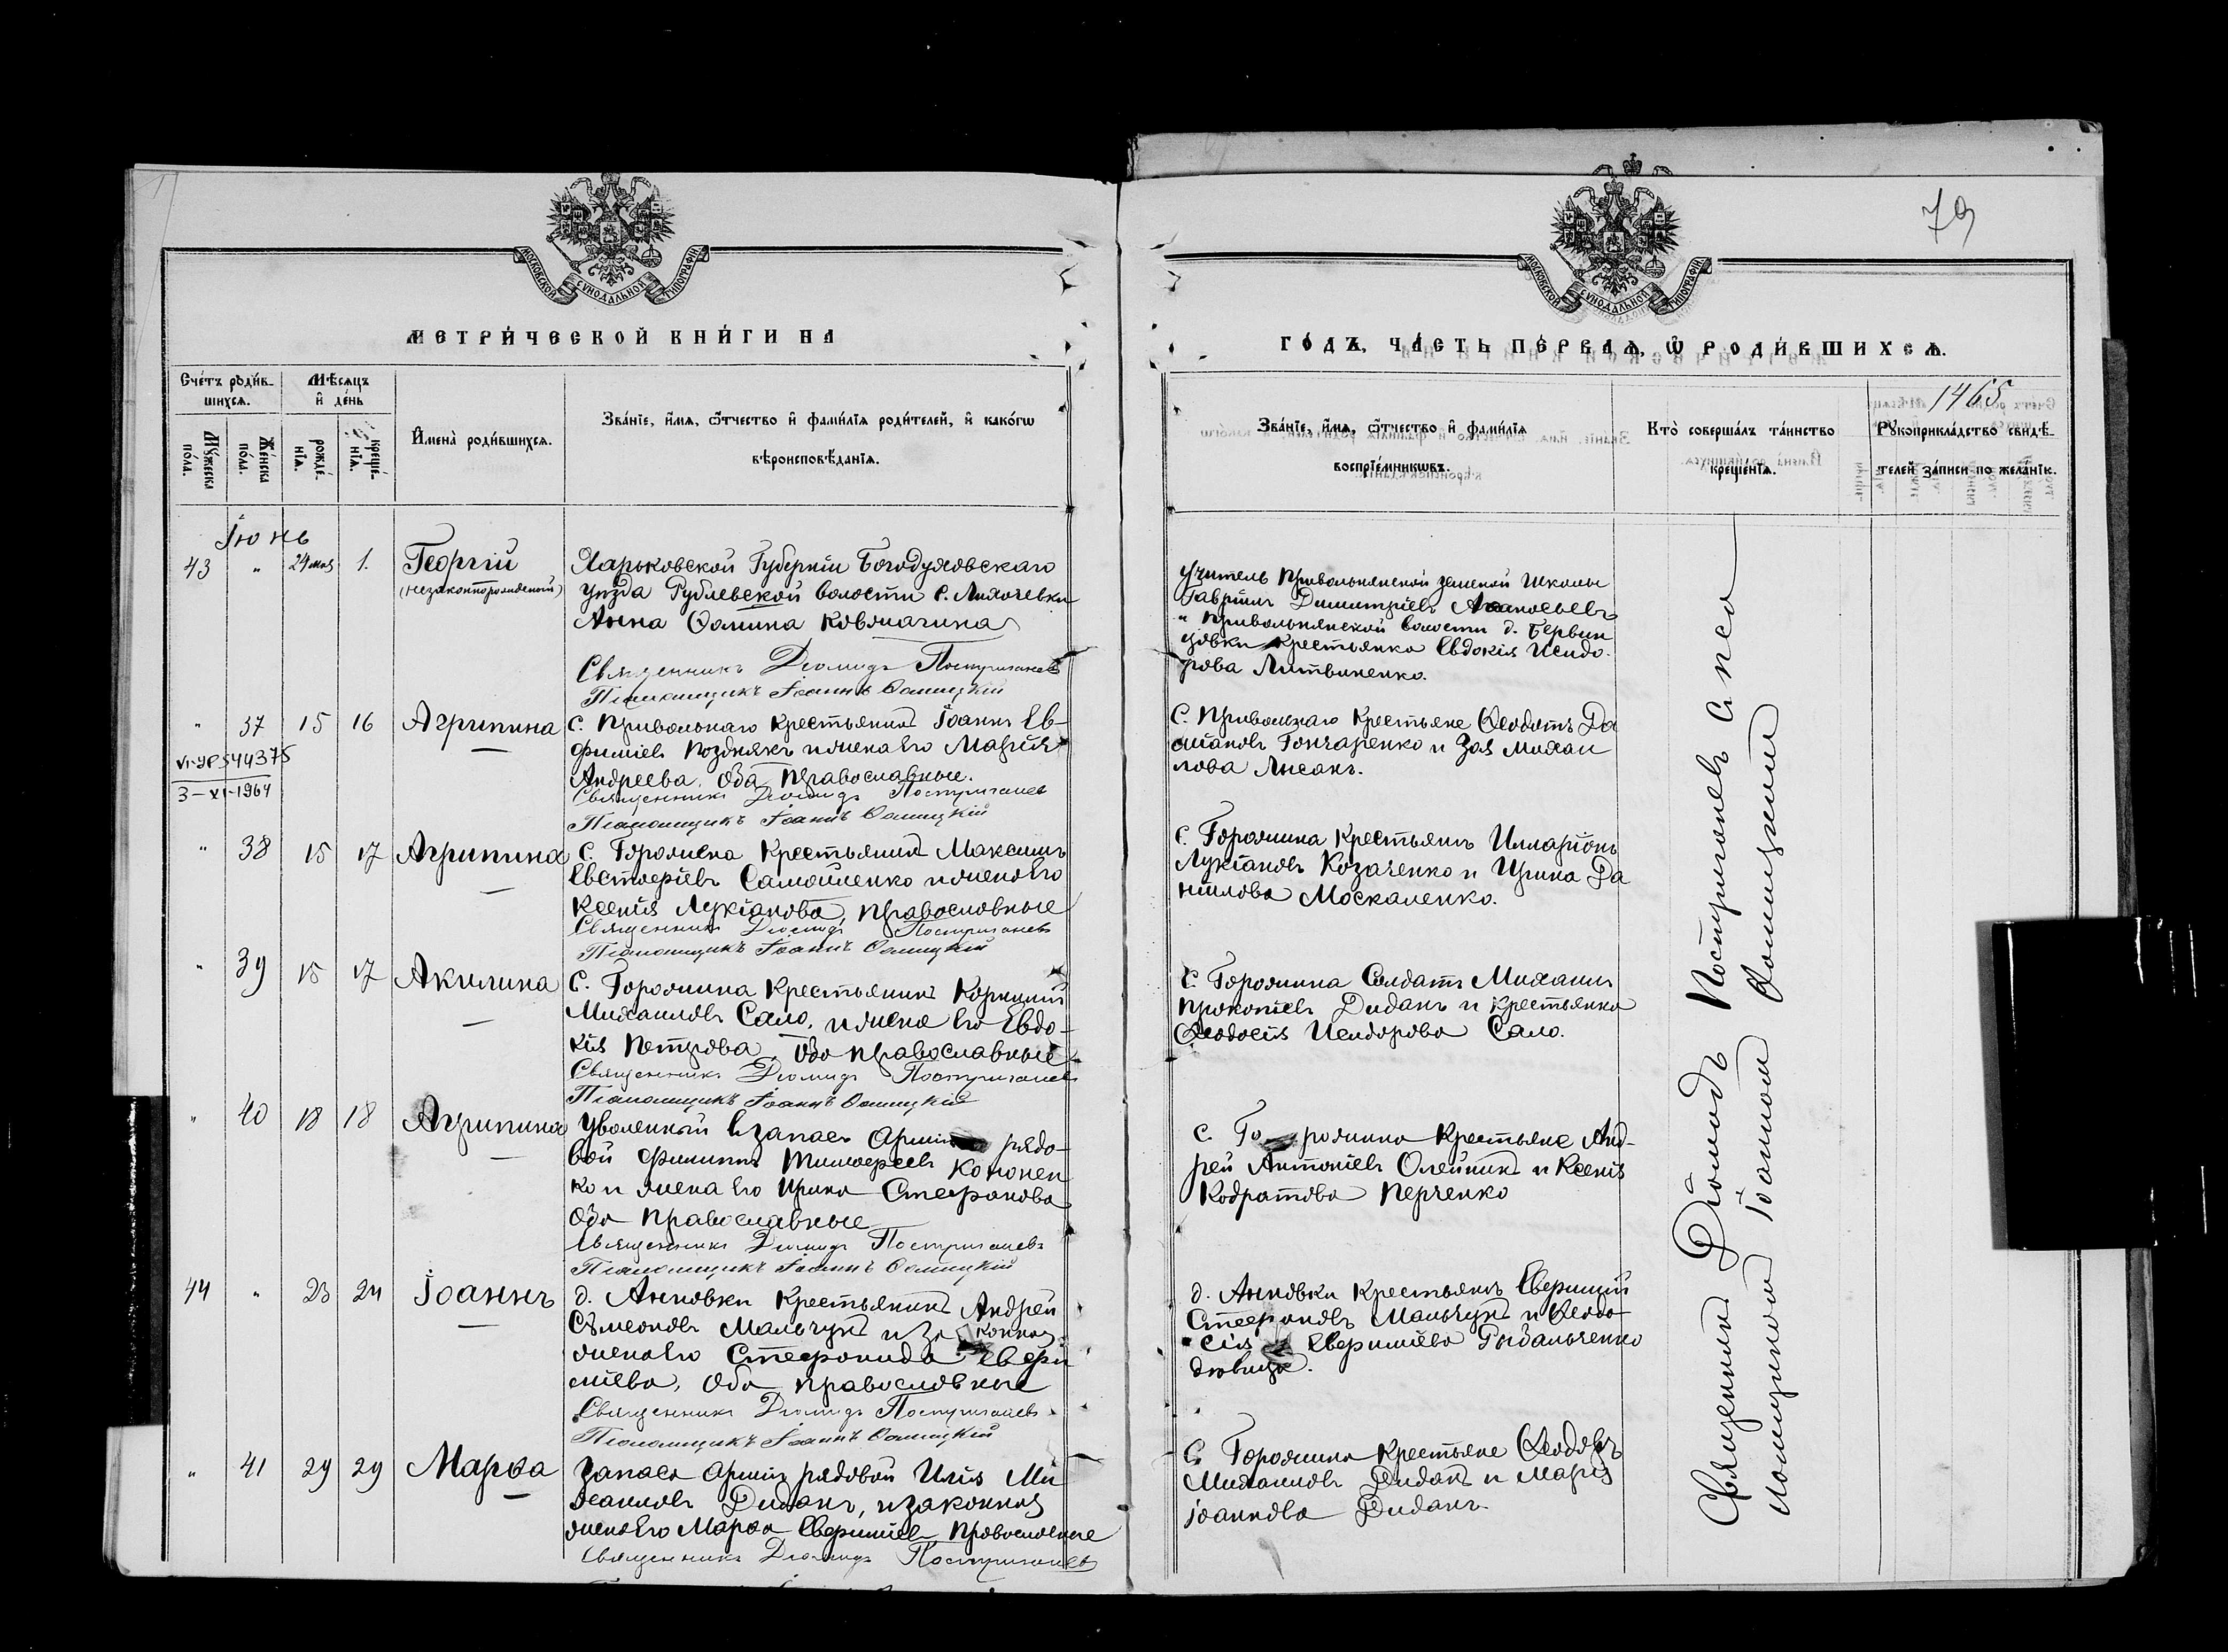 79
МОСКОВСКОЙ СУНОДАЛЬНОЙ ТИПОГРАФІИ.
МОСКОВСКОЙ СУНОДАЛЬНОЙ ТИПОГРАФІИ.
МЕТРИ́ЧЕСКОЙ КНИ́ГИ НА
ГО́ДЪ, ЧА́СТЬ ПЕ́РВАѦ, Ѽ РОДИ́ВШИХСѦ.
1465
Сче́тъ роди́в-
шихсѧ.
Мѣ́сѧцъ
и҆ де́нь
Мꙋ́жеска по́ла.
Же́нска по́ла.
рожде́-
нїѧ.
креще́-
нїѧ.
И҆мена̀ роди́вшихсѧ.
Зва́нїе, и҆́мѧ, ѻ҆́тчество и҆ фами́лїѧ роди́телей, и҆ како́гѡ
вѣроисповѣ́данїѧ.
Зва́нїе, и҆́мѧ, ѻ҆́тчество и҆ фами́лїѧ
воспрїе́мникѡвъ.
Кто̀ соверша́лъ та́инство
креще́нїѧ.
Рꙋкоприкла́дство свидѣ́-
телей за́писи по жела́нїю.
Іюнь
43 " 24 мая 1. Георгій
(незаконнорожденный)
Харьковской Губерніи Богодуховскаго
уѣзда Рублевской волости с. Лихачевки
Анна Ѳомина
Священникъ Діомидъ Постригачевъ
Псаломщикъ Іоаннъ Ѳомицкій
Учитель Привольнянской земской школы
Гавріилъ Димитріевъ
и Привольнянской волости д.
крестьянка Евдокія Исидо-
рова Литвиненко.
" 37 15 16 Агрипина
VI-УР 544375
3-XI-1964
с. Привольнаго крестьянинъ Іоаннъ Ев-
фиміевъ Позднякъ и жена его Марія
Андреева, оба православные.
Священникъ Діомидъ Постригачевъ
Псаломщикъ Іоаннъ Ѳомицкій
С. Привольнаго крестьяне Ѳеодотъ Да
міановъ Гончаренко и Зоя Михаи
лова Лысакъ.
" 38 15 17 Агрипина
с. Горожина крестьянинъ Максимъ
Евстафіевъ Самойленко и жена его
Ксенія Лукіанова, православные
Священникъ Діомидъ Постригачевъ
Псаломщикъ Іоаннъ Ѳомицкій
с. Горожина крестьянинъ Илларіонъ
Лукіановъ Козаченко и Ирина Да
ніилова Москаленко.
" 39 15 17 Акилина
с. Горожина крестьянинъ Корнилій
Михаиловъ Сало, и жена его Евдо-
кія Петрова, оба православные
Священникъ Діомидъ Постригачевъ
Псаломщикъ Іоаннъ Ѳомицкій
с. Горожина Солдатъ Михаилъ
Прокопіевъ Диданъ и крестьянка
Ѳеодосія Исидорова Сало.
" 40 18 18 Агрипина
Уволенный въ запасъ Арміи рядо-
вой Филиппъ Тимофеевъ Кононен
ко и жена его Ирина Стефанова
оба православные
Священникъ Діомидъ Постригачевъ
Псаломщикъ Іоаннъ Ѳомицкій
с. Горожина крестьяне Анд-
рей Антоніевъ Олейникъ и Ксенія
Кодратова Перченко
44 " 23 24 Іоаннъ
д. Анновки крестьянинъ Андрей
Сѵмеоновъ Мальчукъ и законная
жена его Стефанида Евфи
міева, оба православные
Священникъ Діомидъ Постригачевъ
Псаломщикъ Іоаннъ Ѳомицкій
д. Анновки крестьянинъ Евфимій
Стефановъ Мальчукъ и Ѳеодо-
сія Евфиміева Рыбальченко
дѣвица.
" 41 29 29 Марѳа
Запаса Арміи рядовой Илія Ми
хаиловъ Диданъ, и законная
жена его Марѳа Евфиміева православные
Священникъ Діомидъ Постригачевъ
с. Горожина крестьяне Ѳеодоръ
Михаиловъ Диданъ и Марія
Іоаннова Диданъ
Священникъ Діомидъ Постригачевъ с псал
Іоанномъ Ѳомицкимъ